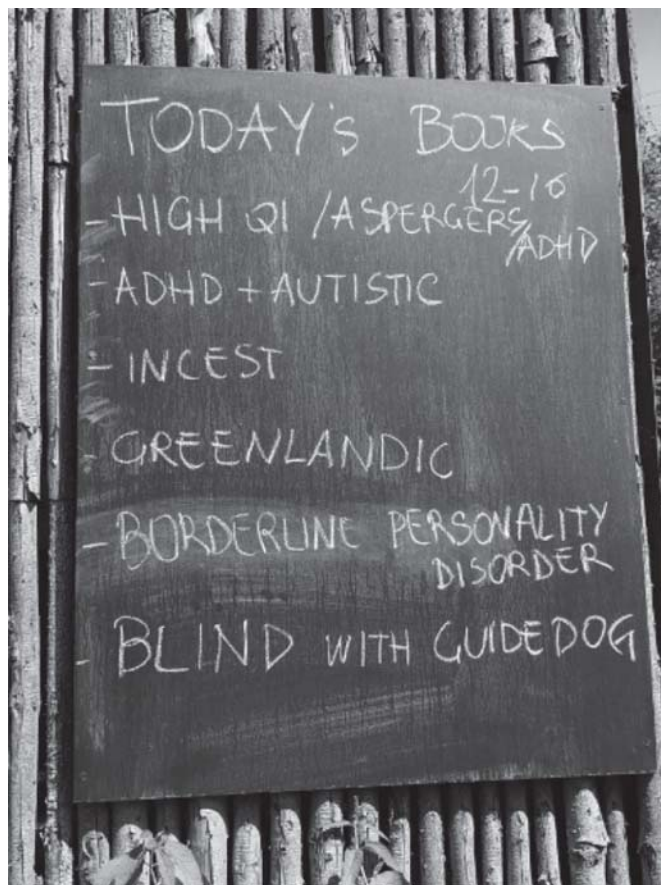 TODAY's BOOKS
12-16
- HIGH QI / ASPERGERS
/ADHD
- ADHD + AUTISTIC
- INCEST
- GREENLANDIC
- BORDERLINE PERSONALITY
DISORDER
- BLIND WITH GUIDEDOG